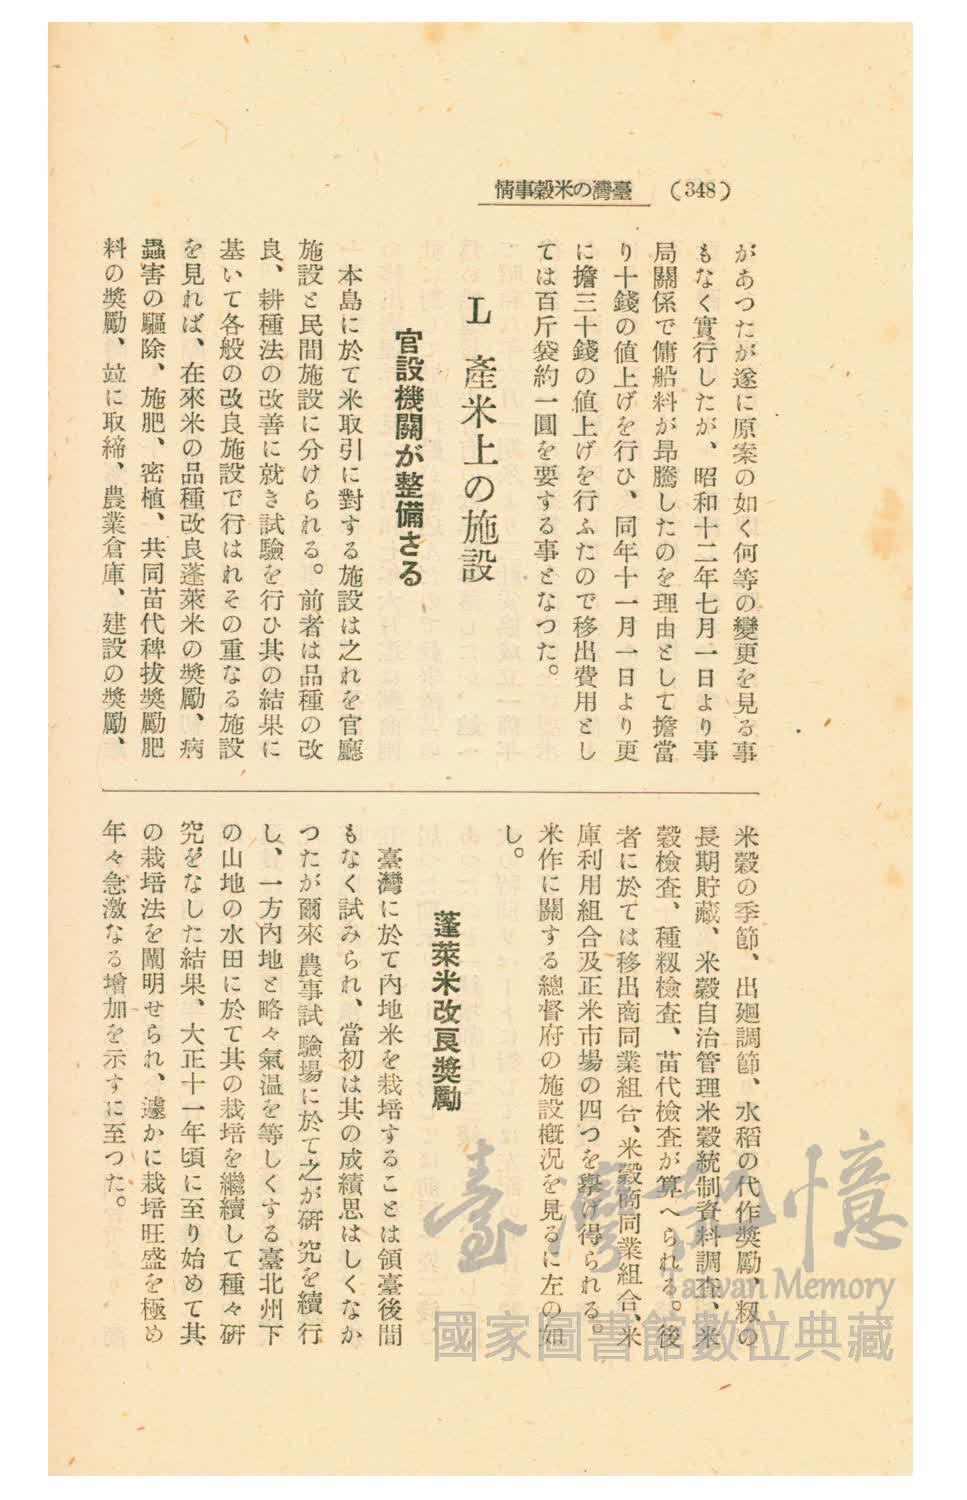 (348)
情事穀米の灣臺
があつたが遂に原案の如く何等の變更を見る事
もなく實行したが、昭和十二年七月一日より事
局關係で傭船料が昂騰したのを理由として擔當
り十錢の値上げを行ひ、同年十一月一日より更
に擔三十錢の値上げを行ふたので移出費用とし
ては百斤袋約一圓を要する事となつた。
L 產米上の施設
官設機關が整備さる
本島に於て米取引に對する施設は之れを官廳
施設と民間施設に分けられる。前者は品種の改
良、耕種法の改善に就き試驗を行ひ其の結果に
基いて各般の改良施設で行はれその重なる施設
を見れば、在來米の品種改良蓬萊米の獎勵、病
蟲害の驅除、施肥、密植、共同苗代稗拔獎勵肥
料の獎勵、竝に取締、農業倉庫、建設の獎勵、
米穀の季節、出廻調節、水稻の代作獎勵、籾の
長期貯藏、米穀自治管理米穀統制資料調査、米
穀檢査、種籾檢査、苗代檢査が算へられる。後
者に於ては移出商同業組合、米穀商同業組合、米
庫利用組合及正米市場の四つを擧げ得られる。
米作に關する總督府の施設槪況を見るに左の如
し。
蓬萊米改良獎勵
臺灣に於て內地米を栽培することは領臺後間
もなく試みられ、當初は其の成績思はしくなか
つたが爾來農事試驗場に於て之が硏究を續行
し、一方內地と略々氣温を等しくする臺北州下
の山地の水田に於て其の栽培を繼續して種々硏
究をなした結果、大正十一年頃に至り始めて其
の栽培法を闡明せられ、遽かに栽培旺盛を極め
年々急激なる增加を示すに至つた。
臺灣記憶
Taiwan Memory
國家圖書館數位典藏